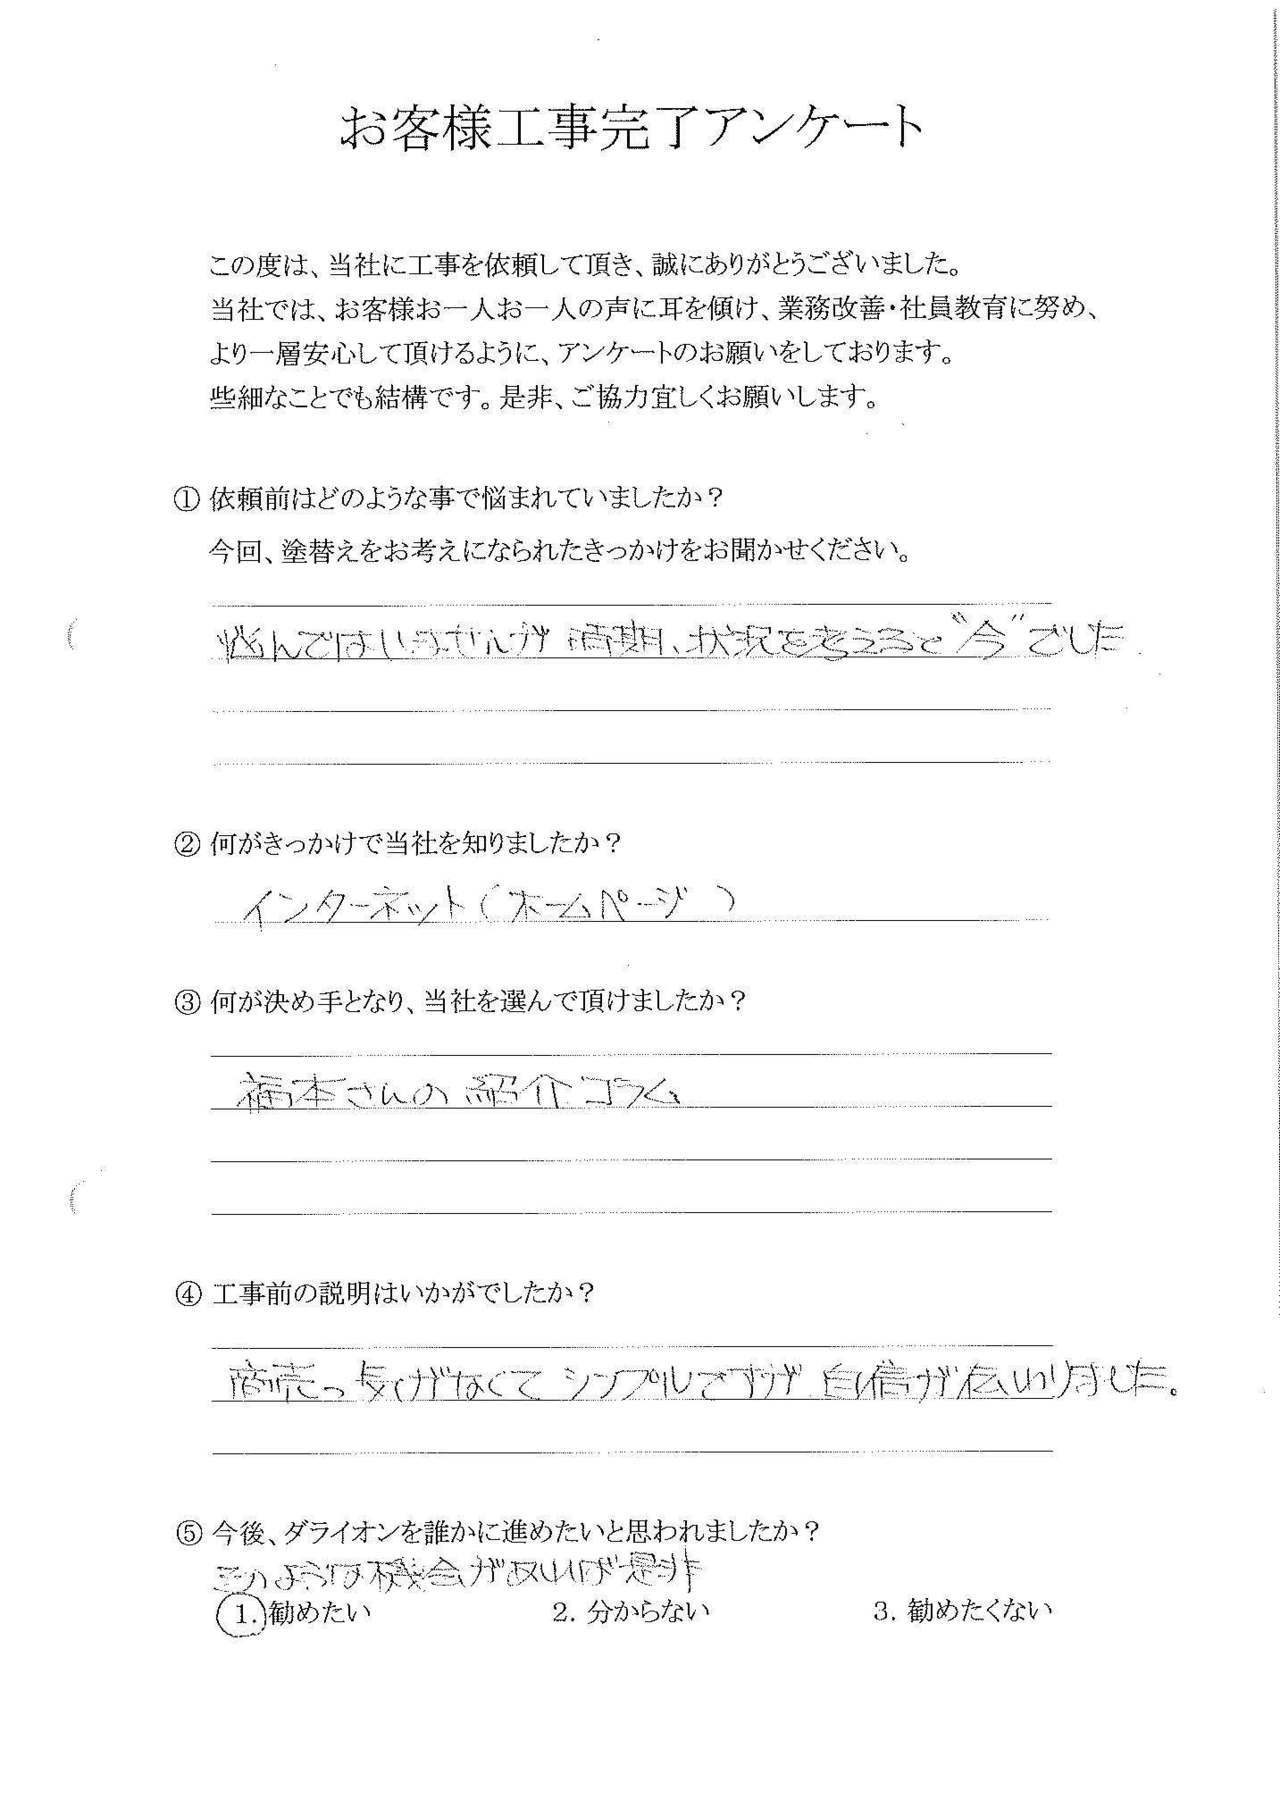 お客様工事完了アンケート
この度は、当社に工事を依頼して頂き、誠にありがとうございました。
当社では、お客様お一人お一人の声に耳を傾け、業務改善・社員教育に努め、
より一層安心して頂けるように、アンケートのお願いをしております。
些細なことでも結構です。是非、ご協力宜しくお願いします。
① 依頼前はどのような事で悩まれていましたか？
今回、塗替えをお考えになられたきっかけをお聞かせください。
悩んではいませんが 時期、状況を考えると"今"でした
② 何がきっかけで当社を知りましたか？
インターネット(ホームページ)
③ 何が決め手となり、当社を選んで頂けましたか？
福本さんの紹介コラム
④ 工事前の説明はいかがでしたか？
商売っ気がなくてシンプルですが 自信が伝わりました。
⑤ 今後、ダライオンを誰かに進めたいと思われましたか？
そのような機会があれば是非
1. 勧めたい 2. 分からない 3. 勧めたくない